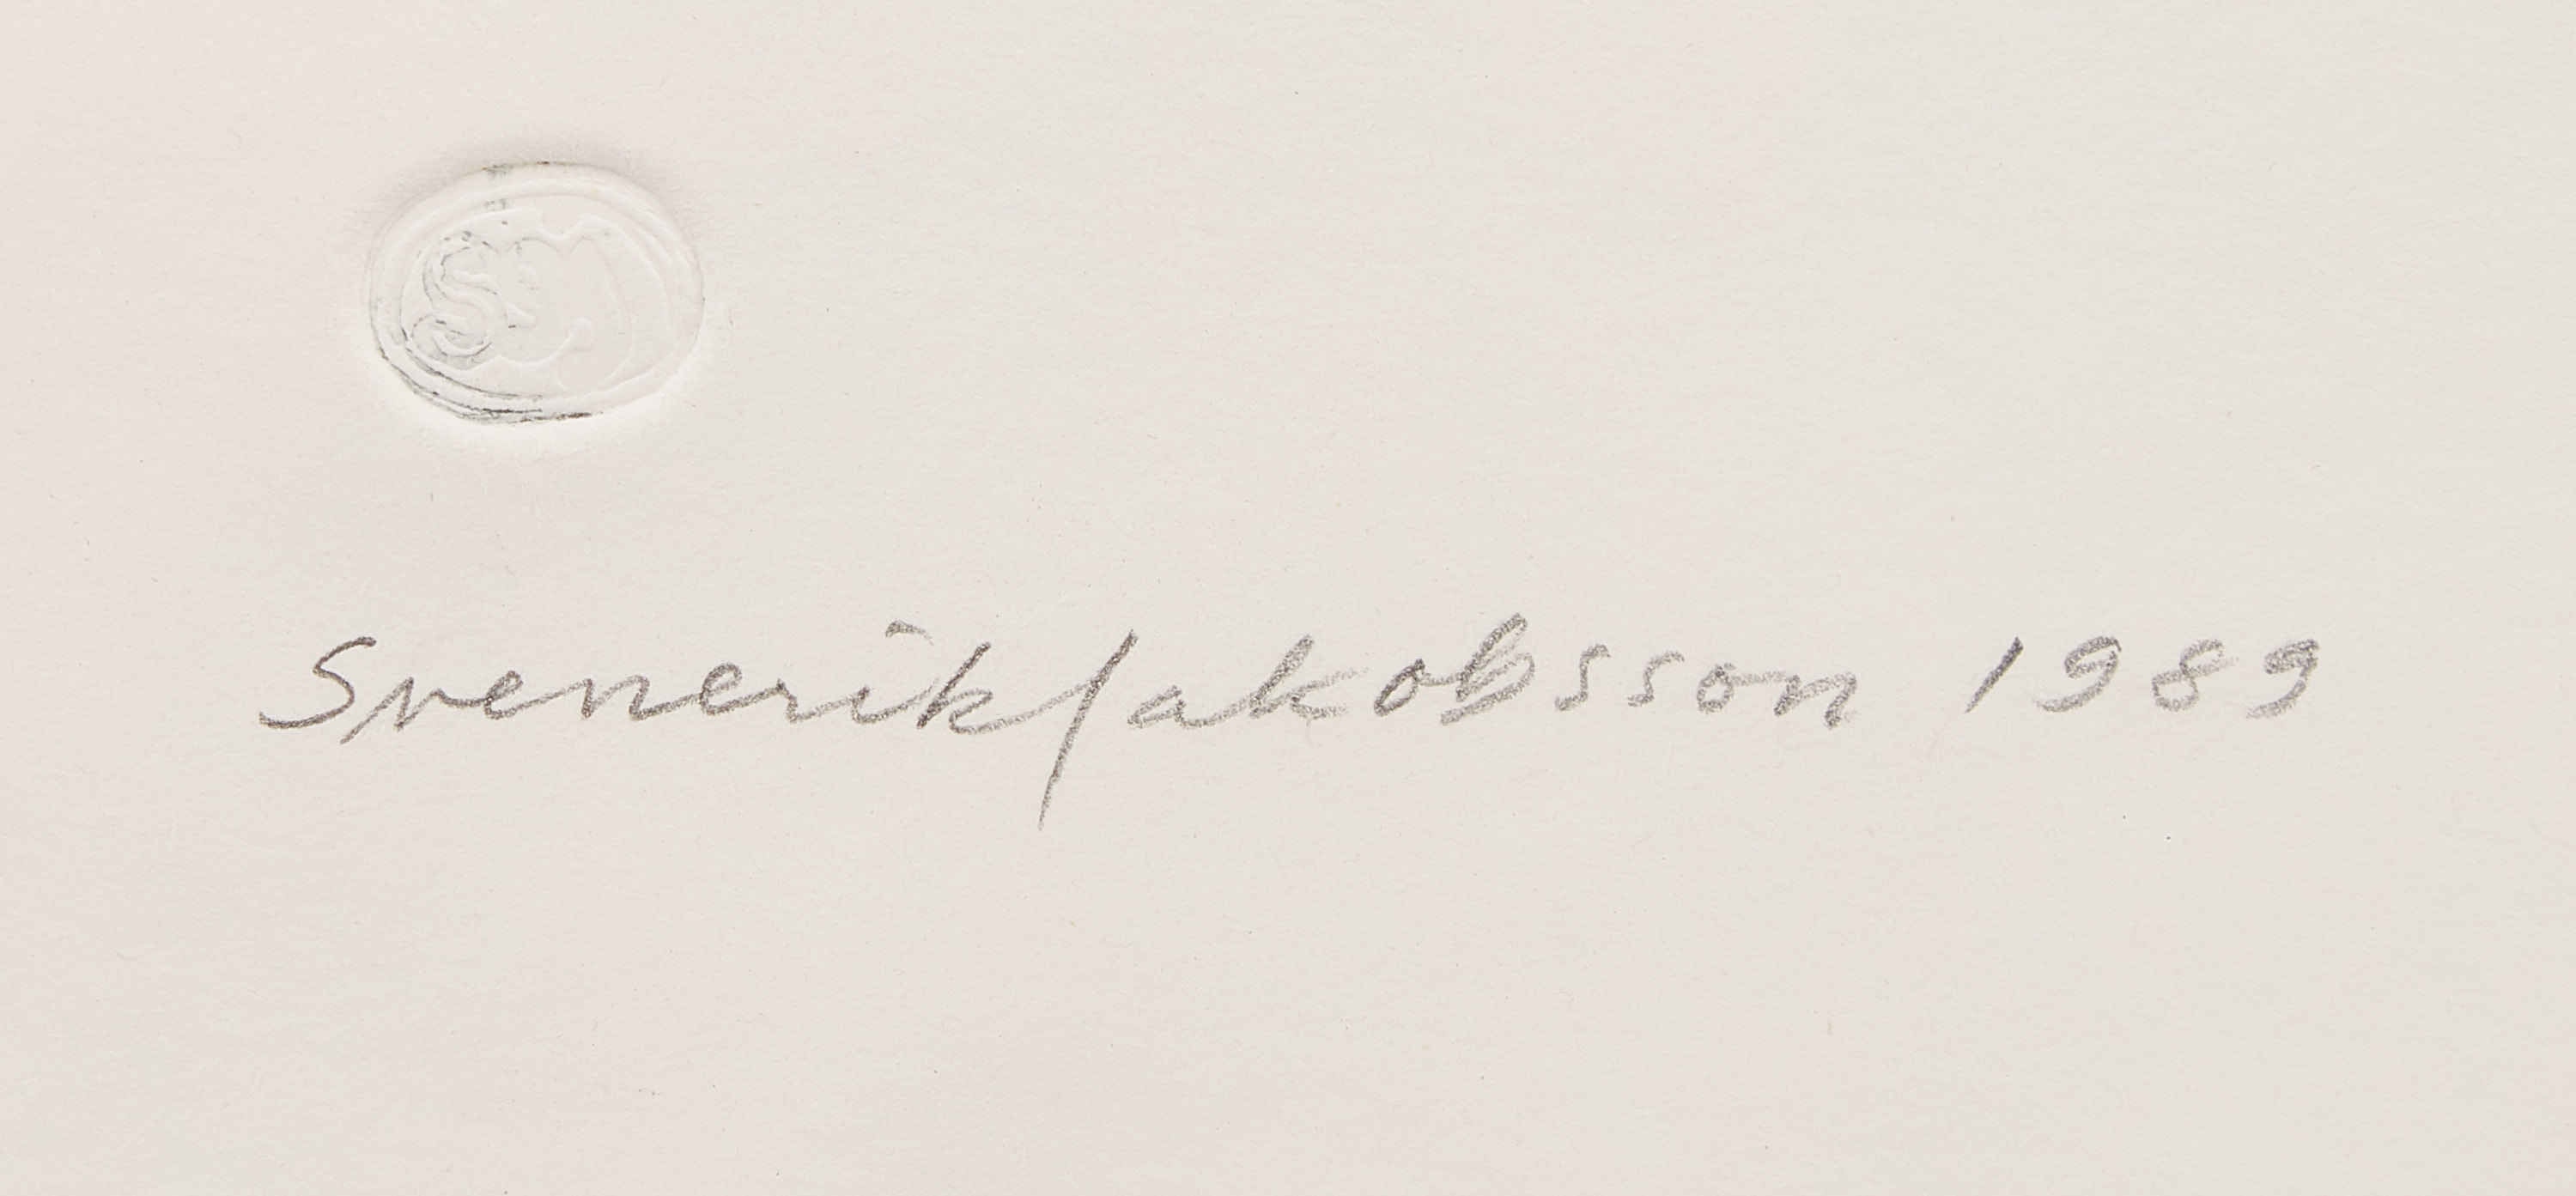 SEJ
SvenerikJakobsson 1989